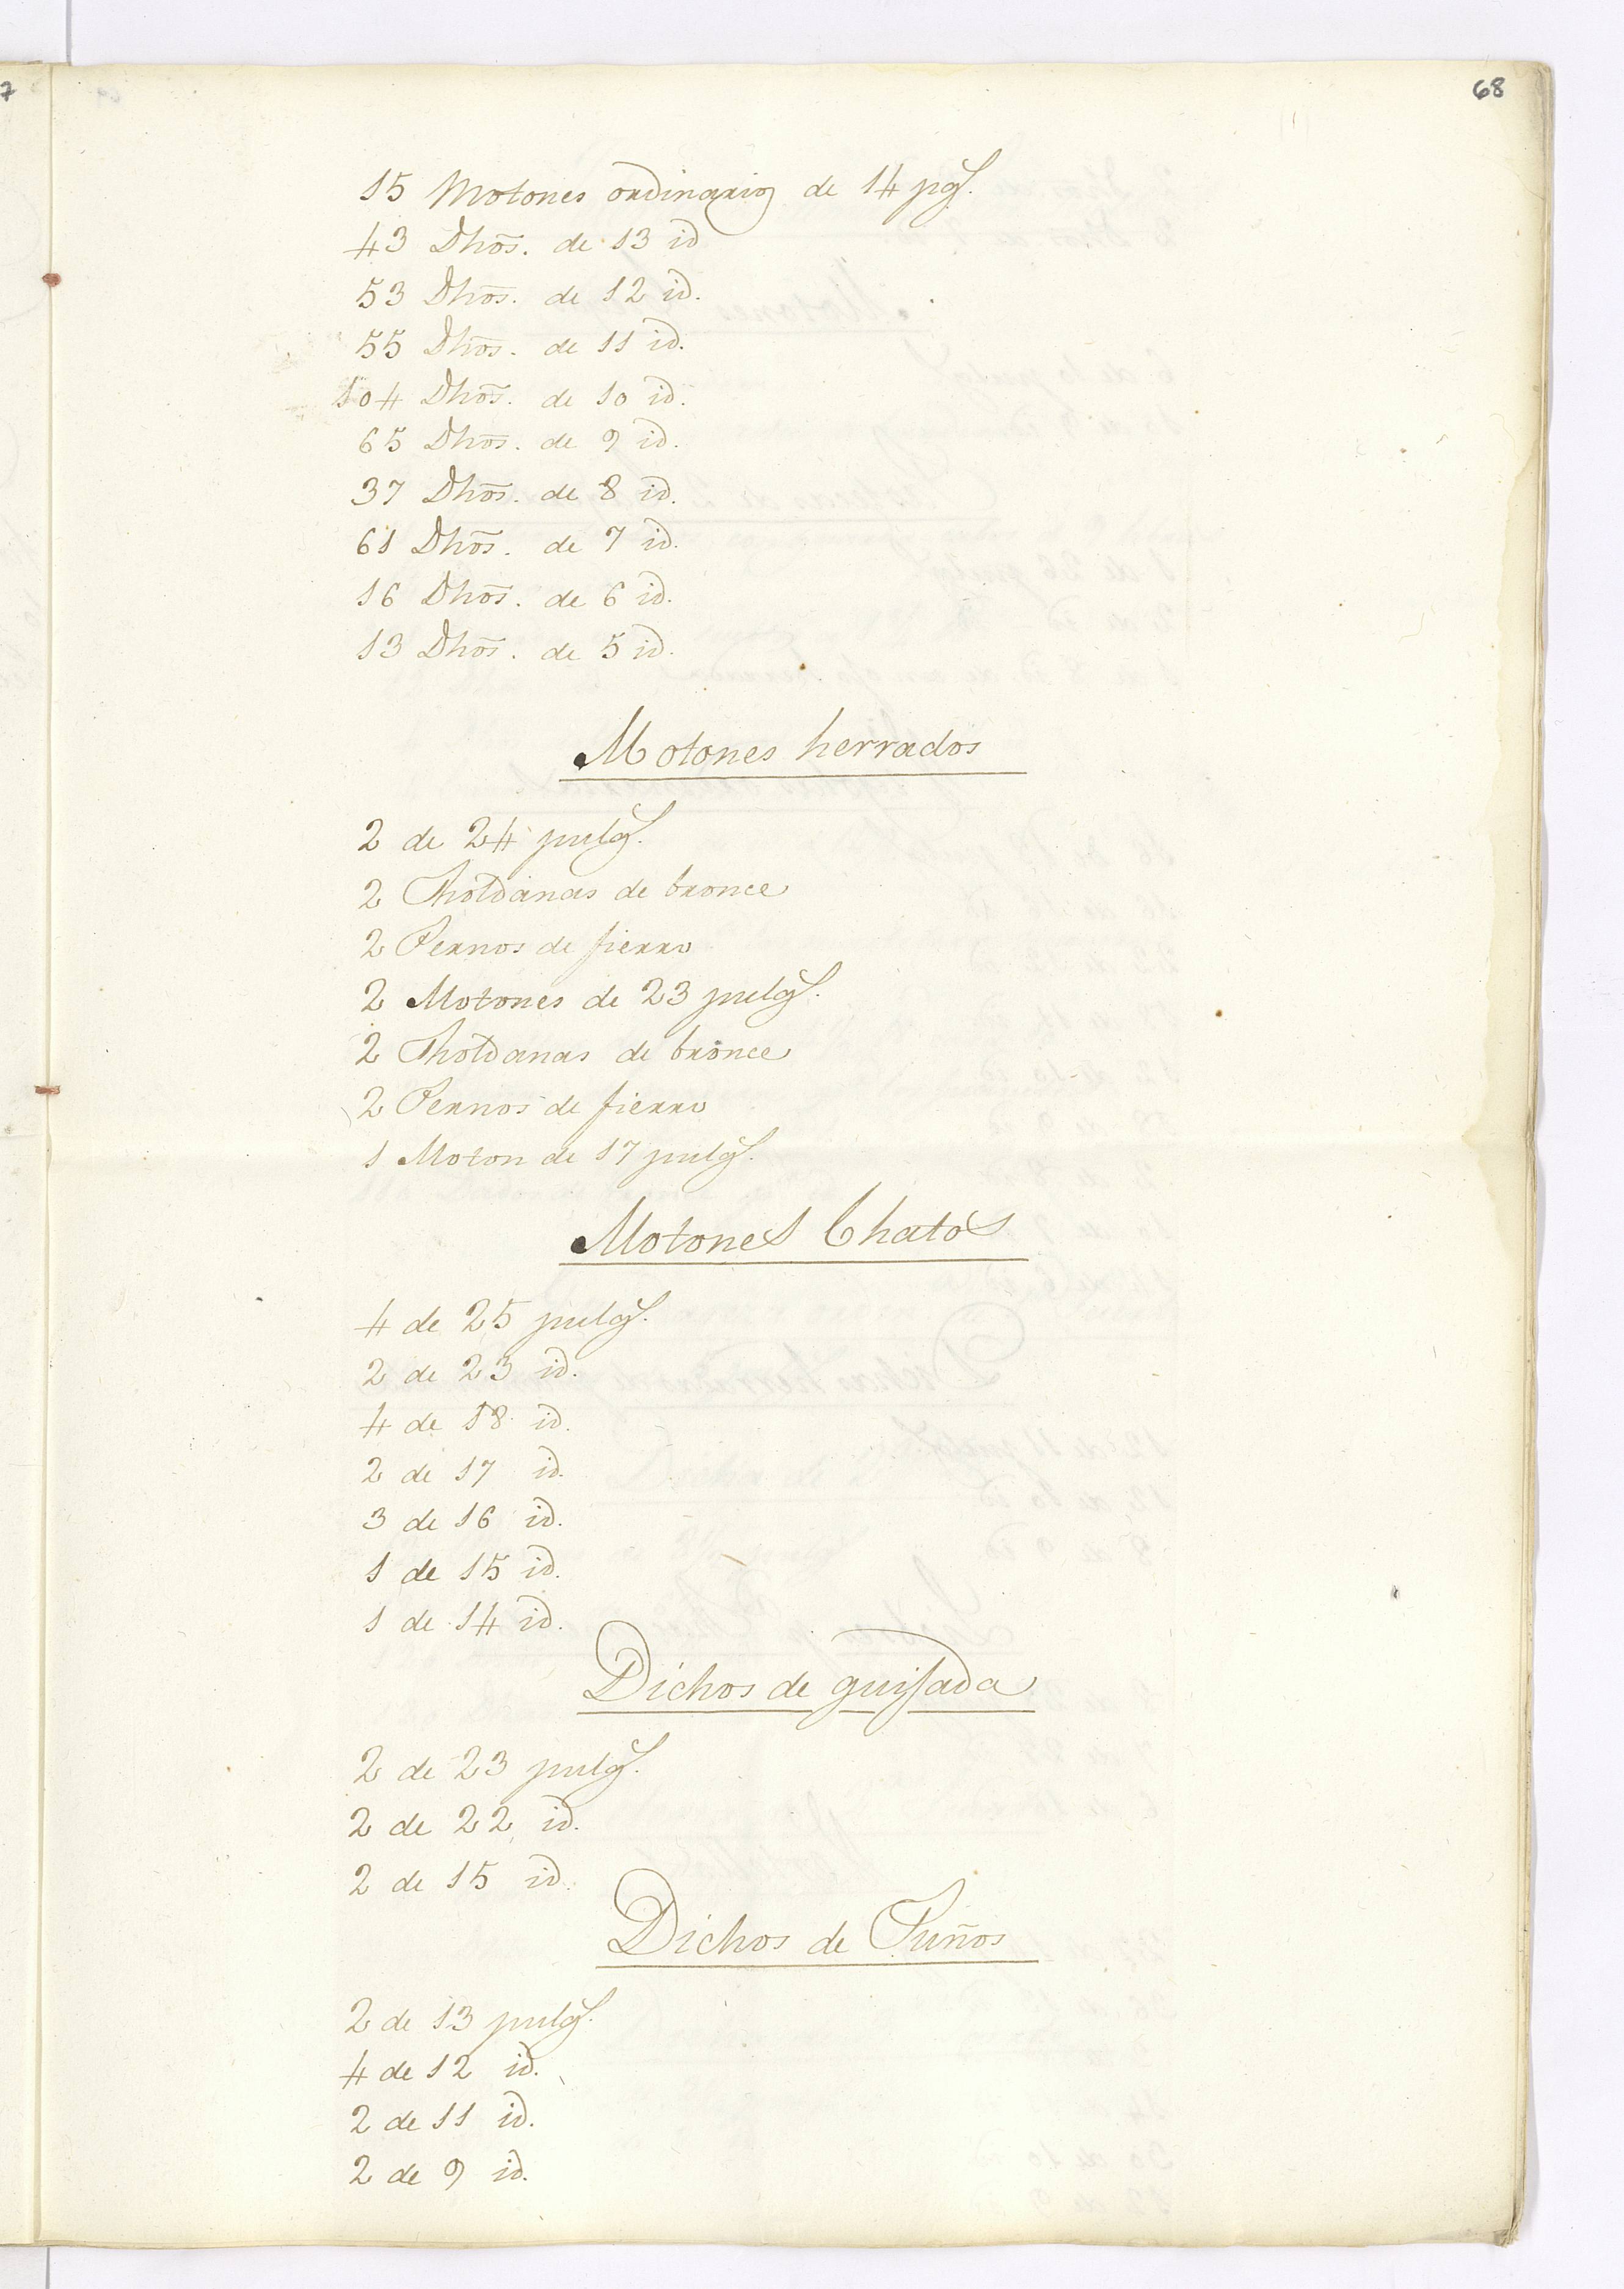 68
15 Motones ordinarios de 14 pgs.
43 Dhōs. de 13 id
53 Dhōs. de 12 id.
55 Dhōs. de 11 id.
104 Dhōs. de 10 id.
65 Dhōs. de 9 id.
37 Dhōs. de 8 id.
61 Dhōs. de 7 id.
16 Dhōs. de 6 id.
13 Dhōs. de 5 id.
Motones herrados
2 de 24 pulgs.
2 Rholdanas de bronce
2 Pernos de fierro
2 Motones de 23 pulgs.
2 Rholdanas de bronce
2 Pernos de fierro
1 Moton de 17 pulgs.
Motones Chatos
4 de 25 pulgs.
2 de 23 id.
4 de 18 id.
2 de 17 id.
3 de 16 id.
1 de 15 id.
1 de 14 id.
Dichos de quijada
2 de 23 pulgs.
2 de 22 id.
2 de 15 id.
Dichos de Puños
2 de 13 pulgs.
4 de 12 id.
2 de 11 id.
2 de 9 id.